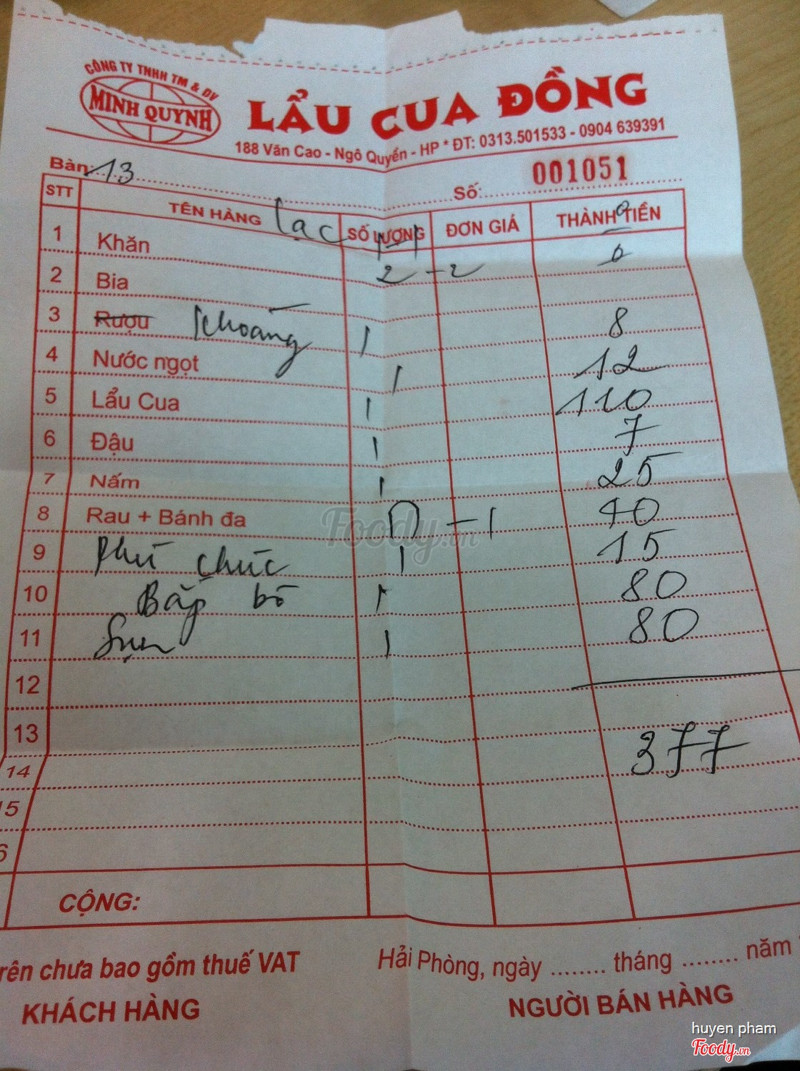 CÔNG TY TNHH TM & DV
MINH QUỲNH
LẨU CUA ĐỒNG
188 Văn Cao - Ngô Quyền - HP * ĐT: 0313.501533 - 0904 639391
Bàn: 13
Số: 001051
STT TÊN HÀNG lạc SỐ LƯỢNG ĐƠN GIÁ THÀNH TIỀN
1 Khăn 2 - 2 0
2 Bia
3 Rượu Khoáng 1 8
4 Nước ngọt 1 12
5 Lẩu Cua 1 110
6 Đậu 1 7
7 Nấm 1 25
8 Rau + Bánh đa - 1 40
9 Phù chúc 1 15
10 Bắp bò 1 80
11 Sụn 1 80
12
13 377
14
15
6
CỘNG:
rên chưa bao gồm thuế VAT
Hải Phòng, ngày ........ tháng ........ năm
KHÁCH HÀNG
NGƯỜI BÁN HÀNG
Foody.vn
huyen pham
Foody.vn